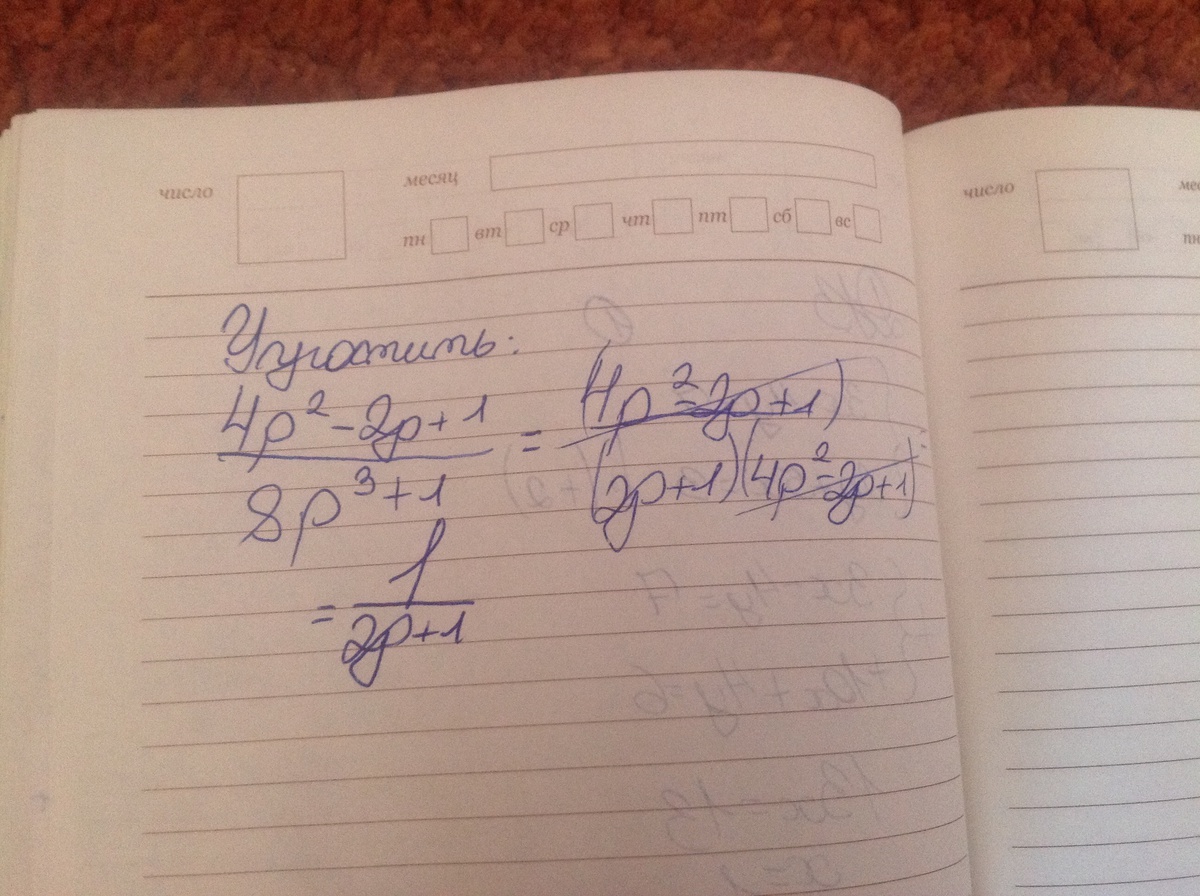 число месяц
пн вт ср чт пт сб вс
число
Упростить:
4p² - 2p + 1 / 8p³ + 1 = (4p² - 2p + 1) / (2p + 1)(4p² - 2p + 1)
= 1 / 2p + 1